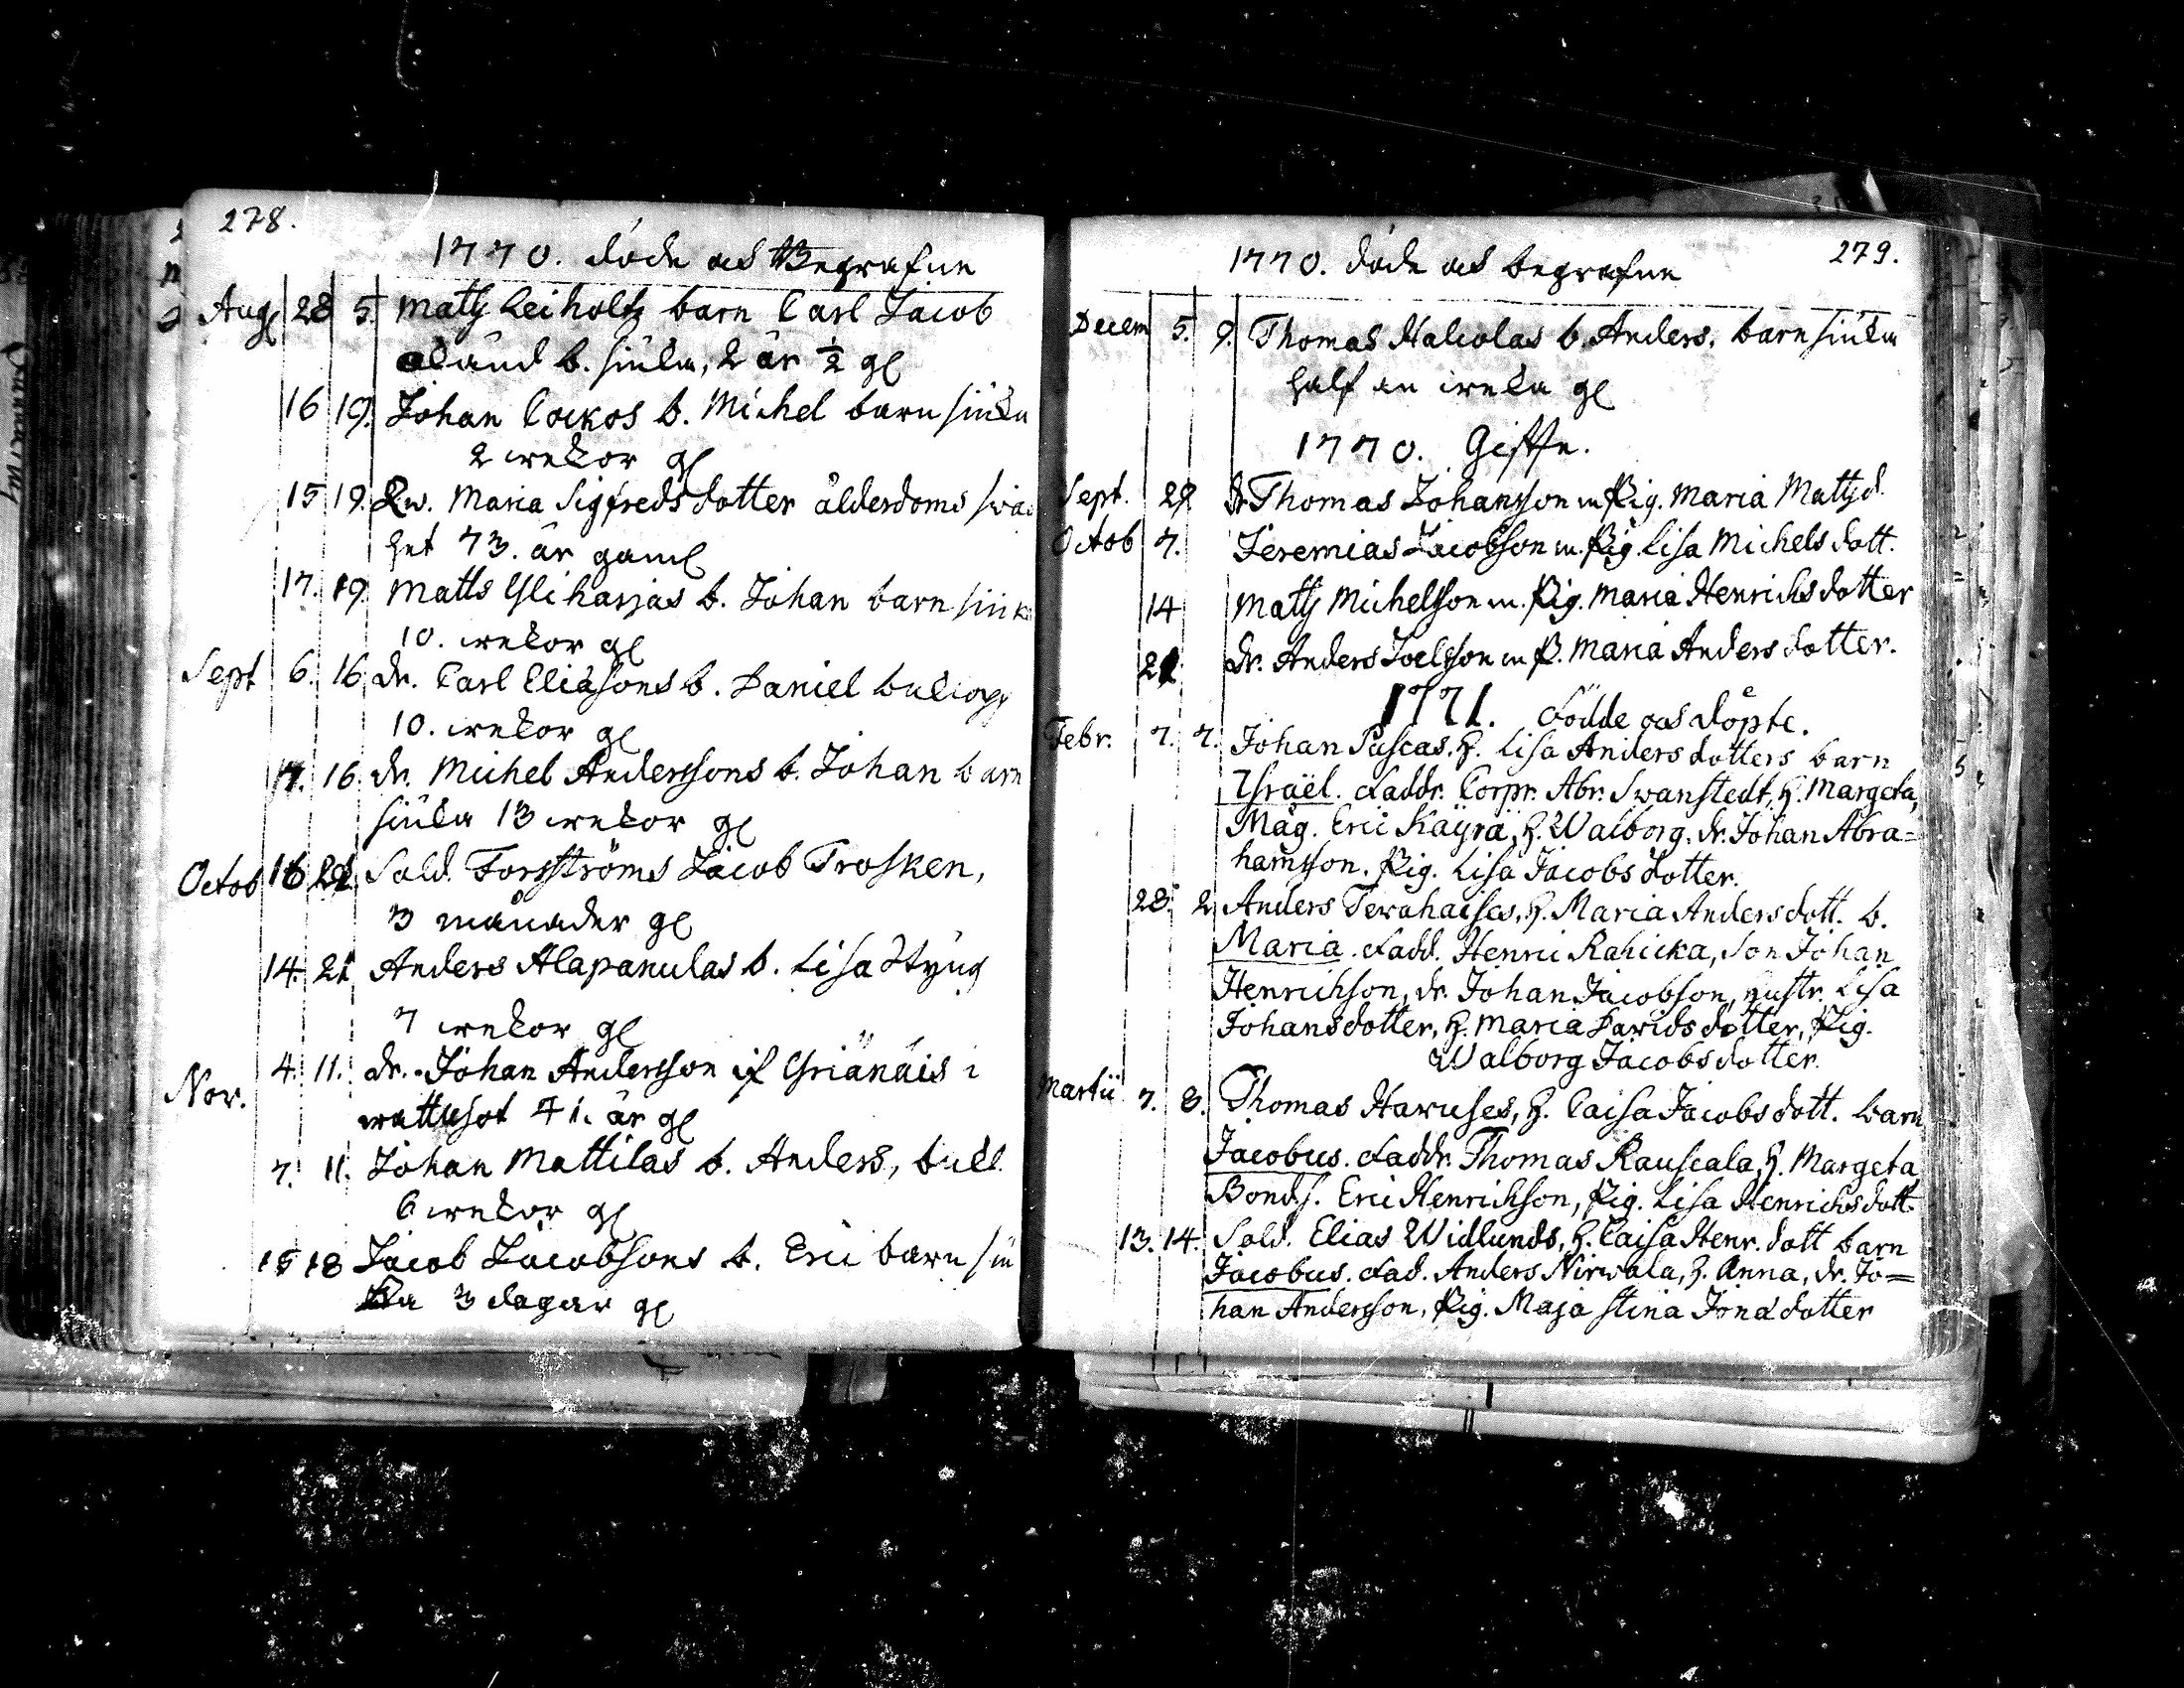 278.
1770. döde och Begrafne
Aug 28 5. Matts Leiholts barn Carl Jacob
okänd b. siuka, 2 år ½ gl
16 19. Johan Cockos b. Michel barnsiuka
2 wekor gl
15 19. Qw. Maria Sigfredsdotter ålderdoms swag
het 73. år gaml
17. 19 Matts Yliharjas b. Johan barnsiuk
10. wekor gl
Sept 6. 16 dr. Carl Eliasons b. Daniel
10. wekor gl
17. 16. dr. Michel Anderssons b. Johan barn
siuka 13 wekor gl
Octob 16 Sold. Forsströms Jacob Trosken,
3 månader gl
14. 21 Anders Alapanulas b. Lisa Styng
7 wekor gl
Nov. 4. 11. dr. Johan Andersson i
wattusot 41. år gl
7. 11. Johan Mattilas b. Anders, bull.
6 wekor gl
15 18 Jacob Jacobsons b. Eric barn siu
ka 3 dagar gl
279.
1770. döde och begrafne
Decem 5. 9. Thomas Halcolas b. Anders, barnsiuka
half en weka gl
1770. Gifte.
Sept. 29 dr Thomas Johansson m Pig. Maria Mattsd.
Octob 7. Jeremias Jacobsson m. Pig Lisa Michelsdott.
14 Matts Michelson m. Pig. Maria Henrichsdotter
21 dr. Anders Joelsson m P. Maria Andersdotter.
1771. födde och döpte.
Febr. 7. 7. Johan Puscas. H. Lisa Andersdotters barn
Israël. faddr. Corpr. Abr. Swanstedt, H. Margeta,
Måg. Eric Kaÿrä, H. Walborg. dr. Johan Abra=
hamsson. Pig. Lisa Jacobsdotter.
28. 2 Anders Terwahaises, H. Maria Andersdott. b.
Maria. fadd. Henric Rahicka, Son Johan
Henrichson, dr. Johan Jacobson, Hustr. Lisa
Johansdotter, H. Maria Davidsdotter, Pig.
Walborg Jacobsdotter.
Martii 7. 8. Thomas Haruses, H. Caisa Jacobsdott. barn
Jacobus. faddr. Thomas Rauscala, H. Margeta
Bonds. Eric Henrichson, Pig. Lisa Henrichsdott.
13. 14. Sold. Elias Widlunds, H. Caisa Henr.dott barn
Jacobus. fad. Anders Nirwala, H. Anna, dr. Jo=
han Andersson, Pig. Maja Stina Jonadotter